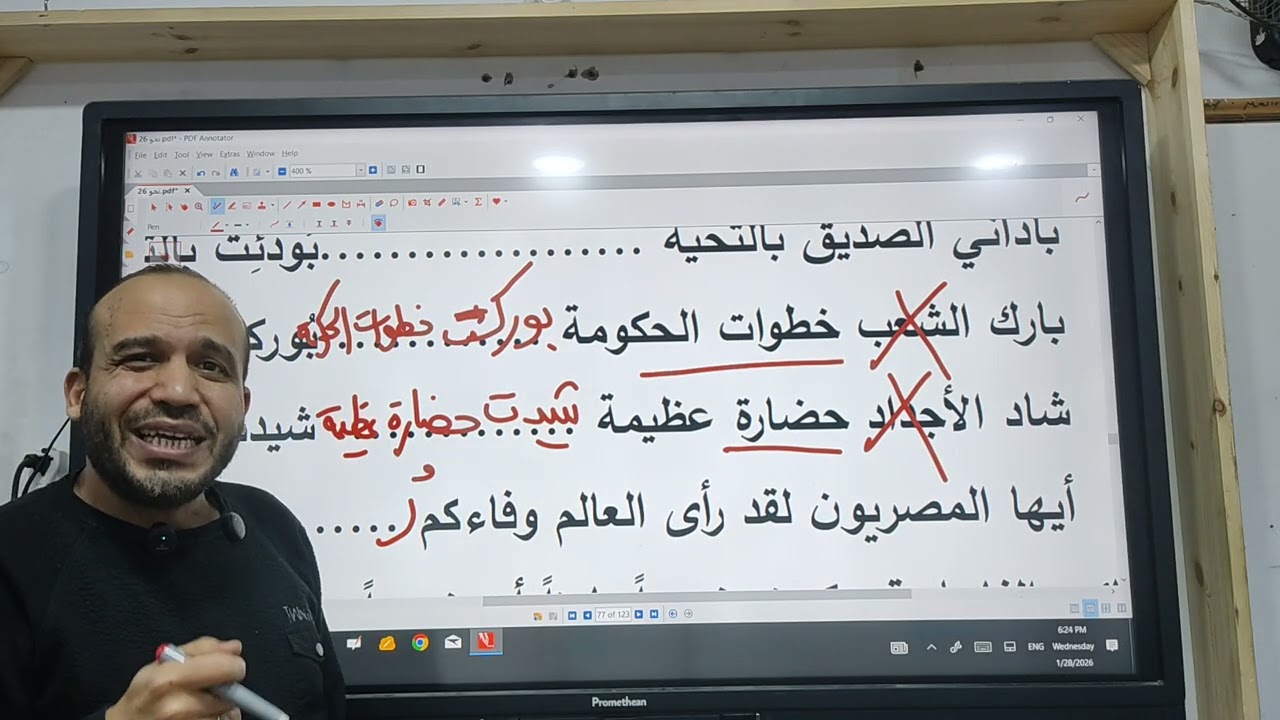 نحو 26.pdf* - PDF Annotator
File Edit Tool View Extras Window Help
400 %
نحو 26.pdf*
Pen
باداني الصديق بالتحية ...................بودئِت
بارك الشعب خطوات الحكومة بوركت خطوات
شاد الأجداد حضارة عظيمة شيدت حضارة عظيمة
أيها المصريون لقد رأى العالم وفاءكم
77 of 123
6:24 PM
ENG Wednesday
1/28/2026
Promethean